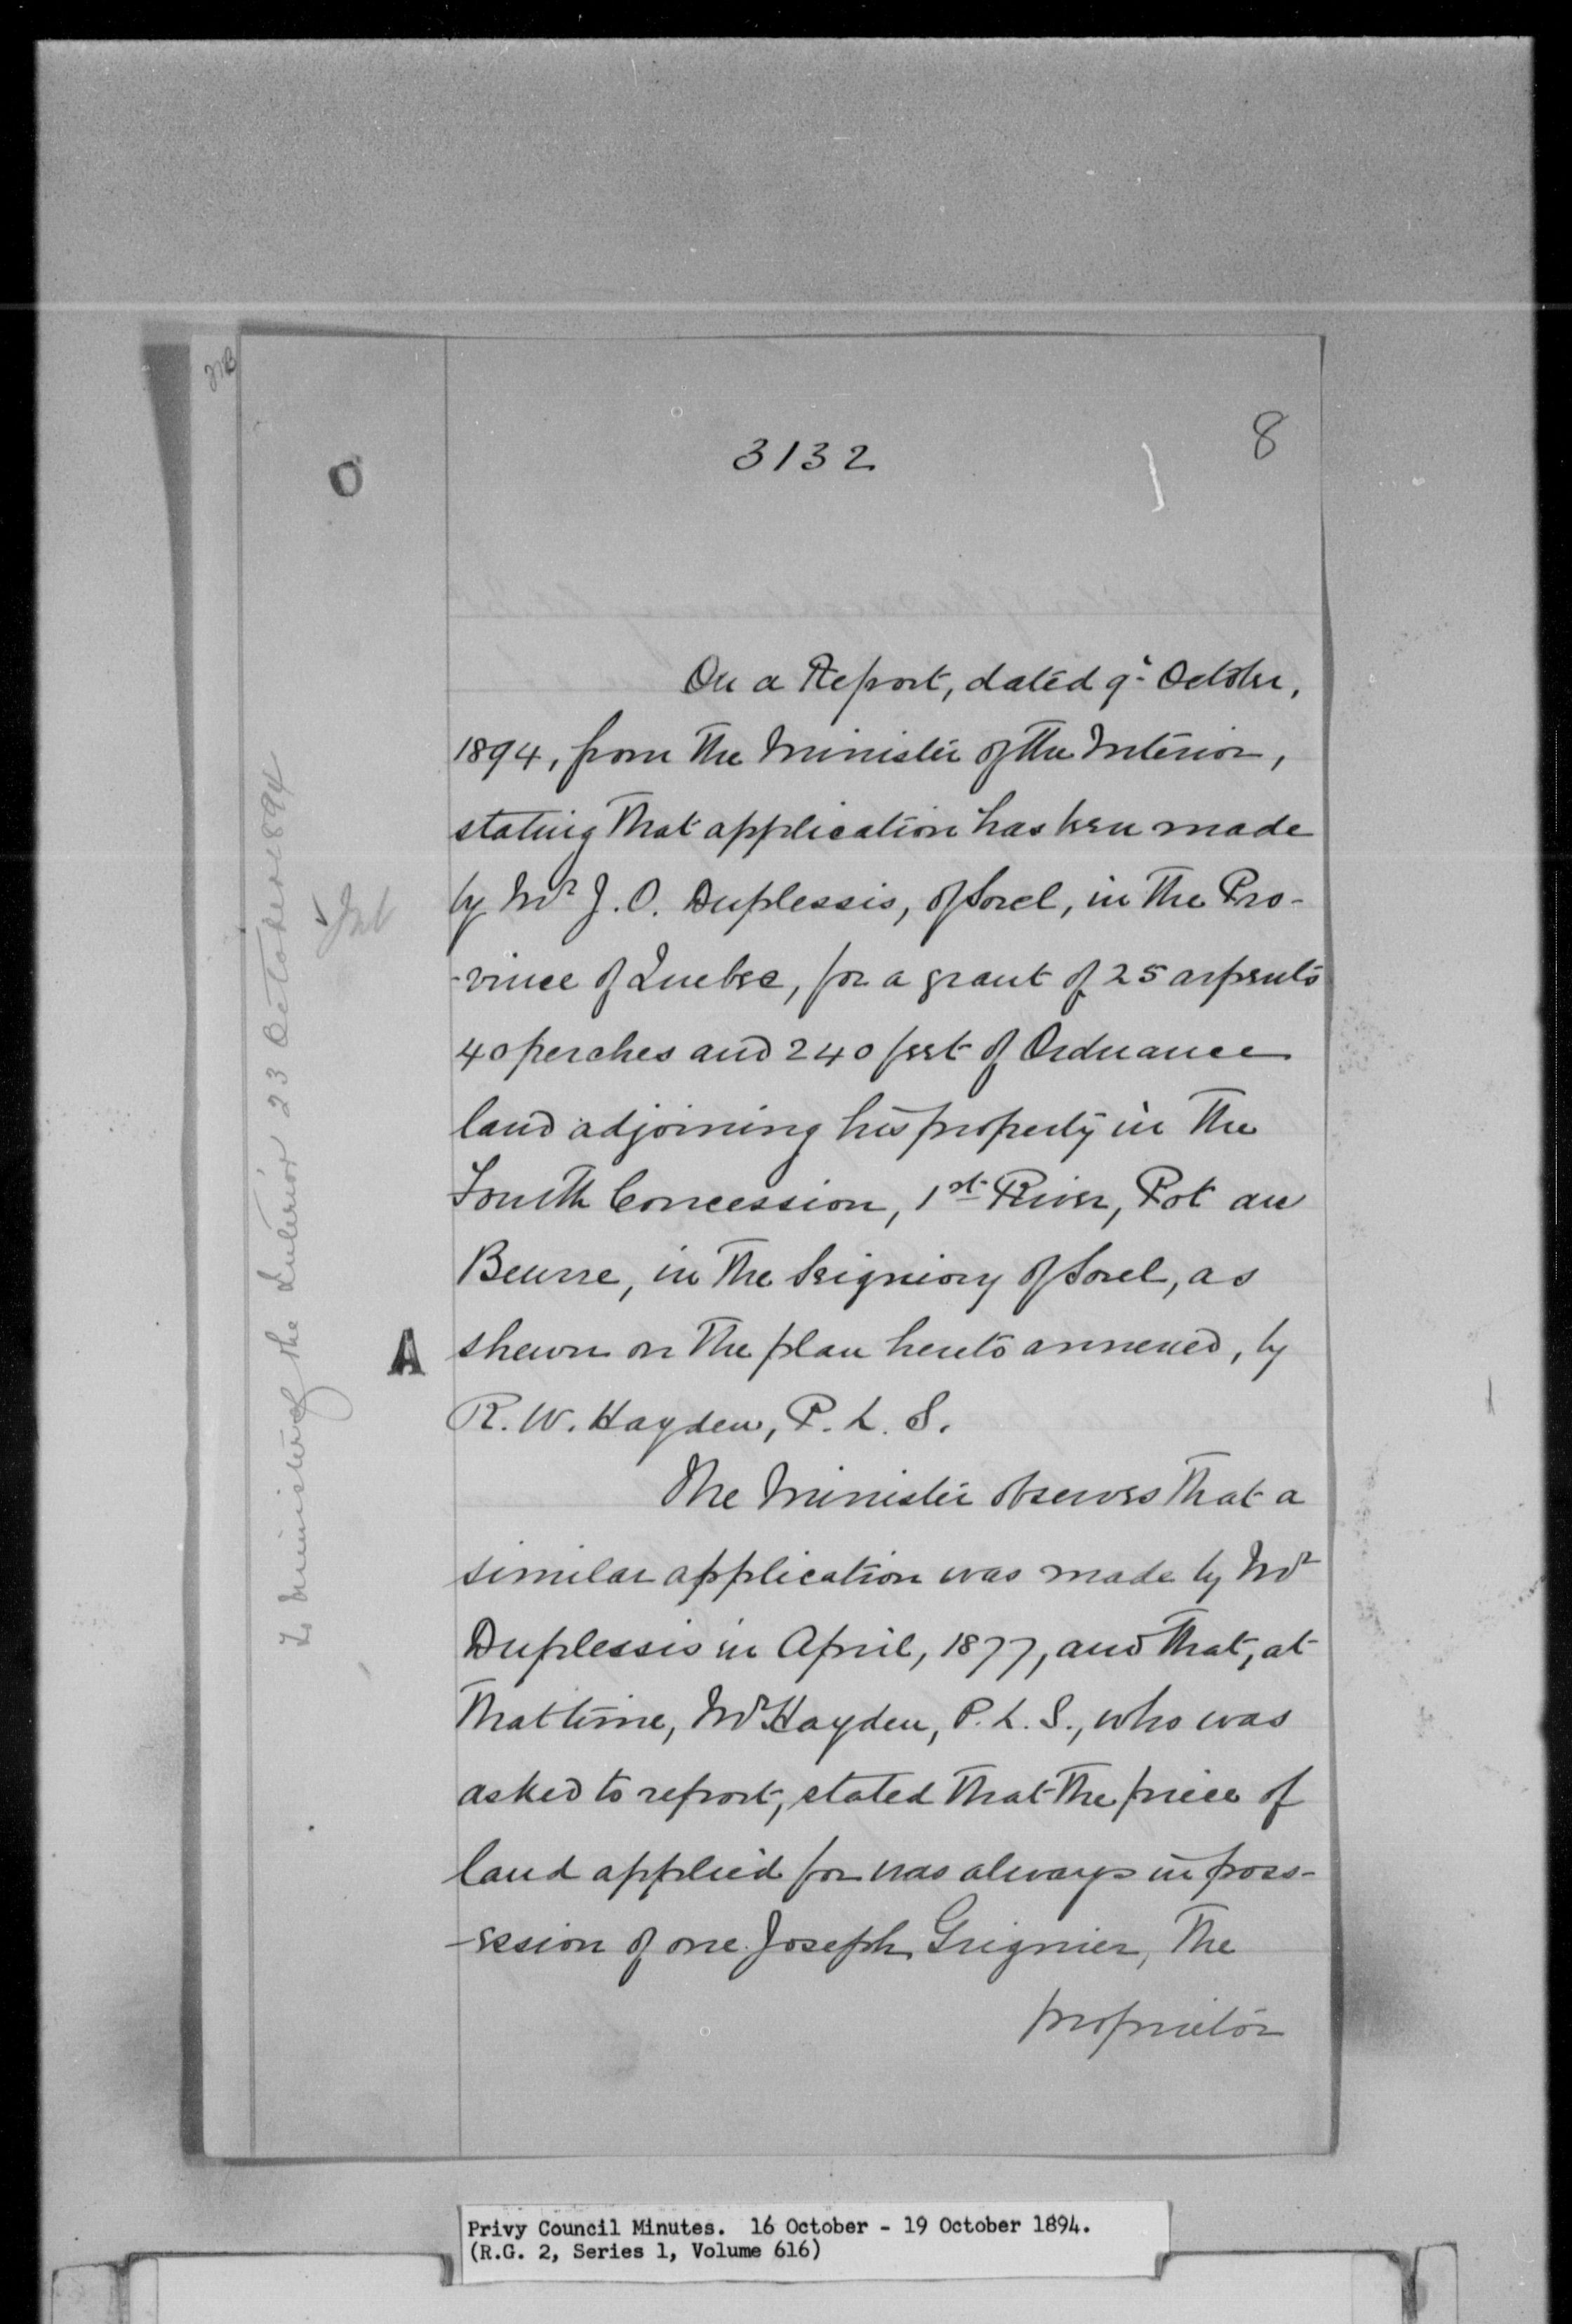 3132
8
O
On a Report, dated 9th October,
1894, from the Minister of the Interior,
stating that application has been made
by Mr J. O. Duplessis, of Sorel, in the Pro-
-vince of Quebec, for a grant of 25 arpents
40 perches and 240 feet of Ordnance
land adjoining his property in the
Fourth Concession, 1st River, Pot au
Beurre, in the Seigniory of Sorel, as
A
shewn on the plan hereto annexed, by
R. W. Hayden, P. L. S.
The Minister observes that a
similar application was made by Mr
Duplessis in April, 1877, and that, at
that time, Mr Hayden, P. L. S., who was
asked to report, stated that the piece of
land applied for was always in poss-
-ession of one Joseph Grignier, the
proprietor
To Minister of the Interior 23 October 1894
Int
Privy Council Minutes. 16 October - 19 October 1894.
(R.G. 2, Series 1, Volume 616)